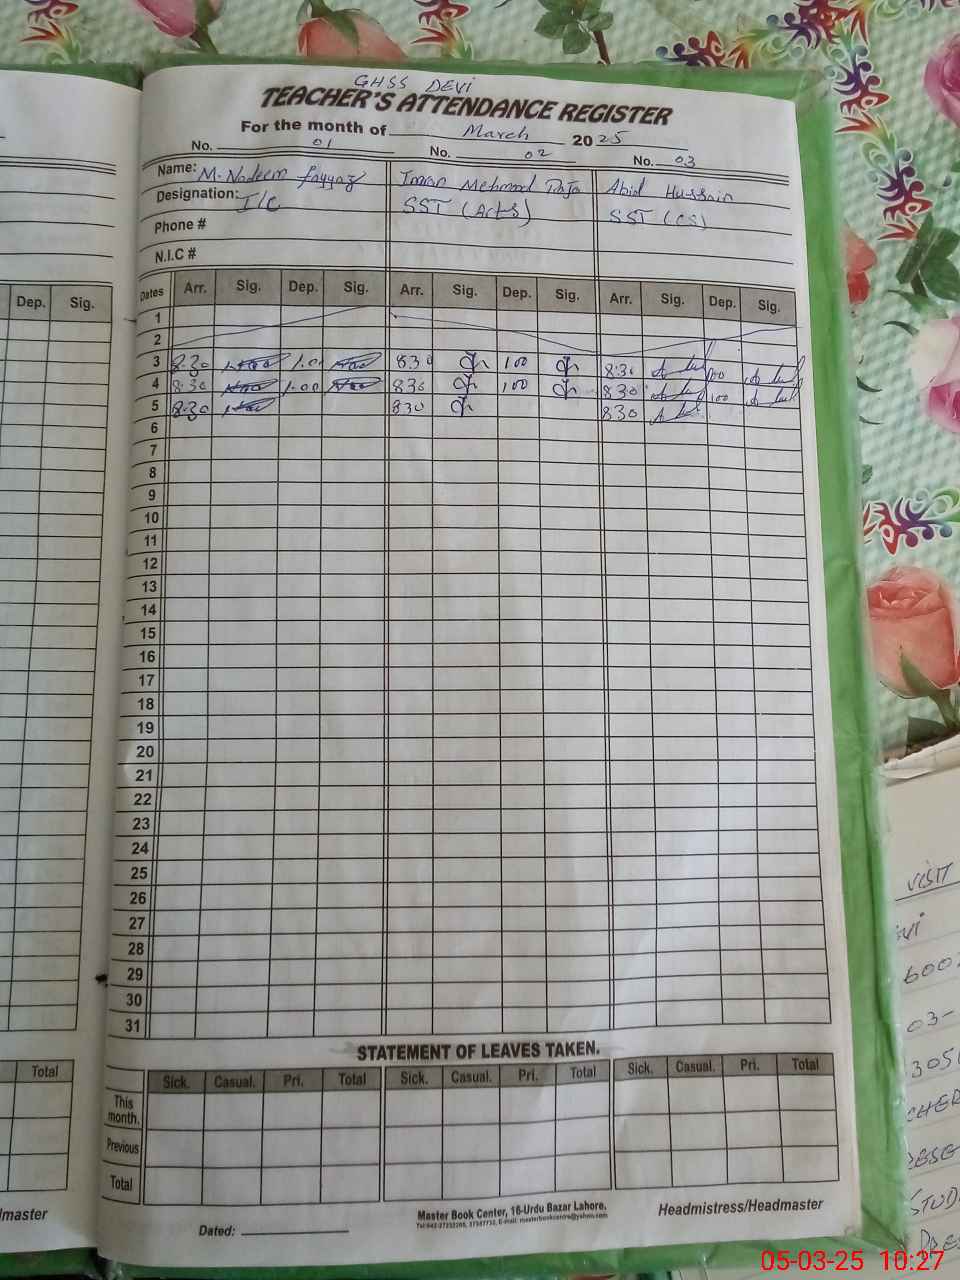 GHSS DEVI
TEACHER'S ATTENDANCE REGISTER
For the month of March 2025
No. 01 No. 02 No. 03
Name: M. Nadeem Fayyaz Imran Mehmood Raja Abid Hussain
Designation: I/C SST (Arts) SST (CS)
Phone #
N.I.C #
Dep. Sig.
Dates Arr. Sig. Dep. Sig. Arr. Sig. Dep. Sig. Arr. Sig. Dep. Sig.
1
2
3 8:30 1.00 830 100 8:30 100
4 8:30 1.00 830 100 830 100
5 8:30 830 830
6
7
8
9
10
11
12
13
14
15
16
17
18
19
20
21
22
23
24
25
26
27
28
29
30
31
STATEMENT OF LEAVES TAKEN.
Total
Sick. Casual. Pri. Total Sick. Casual. Pri. Total Sick. Casual. Pri. Total
This month.
Previous
Total
Master Book Center, 16-Urdu Bazar Lahore.
Headmistress/Headmaster
Dated:
VISIT
03-
05-03-25 10:27